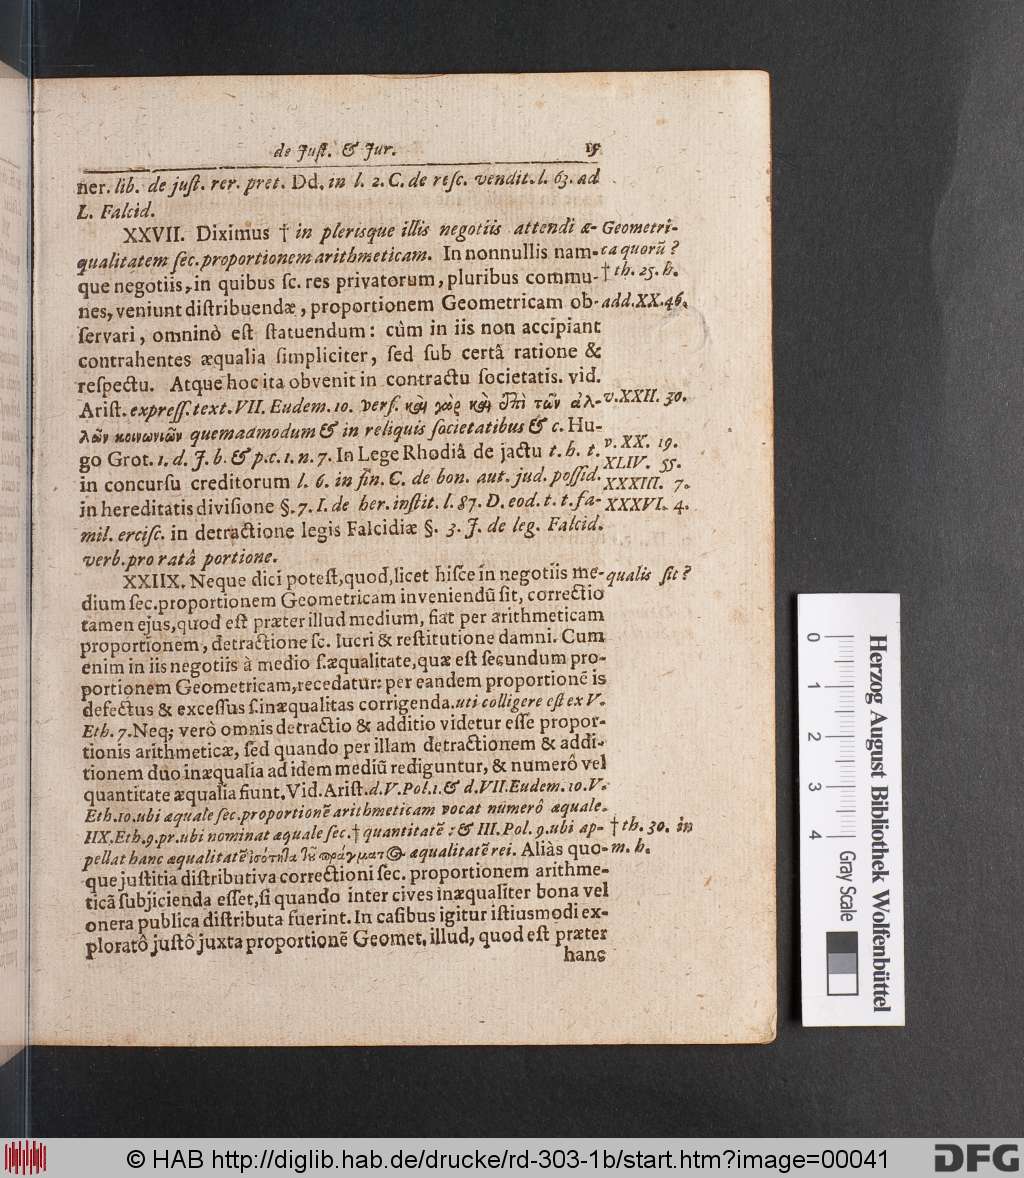 de Just. & Jur. 19
ner. lib. de just. rer. pret. Dd. in l. 2. C. de resc. vendit. l. 63. ad
L. Falcid.
XXVII. Diximus † in plerisque illis negotiis attendi æ- Geometri-
qualitatem sec. proportionem arithmeticam. In nonnullis nam- ca quorũ?
que negotiis, in quibus sc. res privatorum, pluribus commu- † th. 25. h.
nes, veniunt distribuendæ, proportionem Geometricam ob- add. XX. 46.
servari, omninò est statuendum: cùm in iis non accipiant
contrahentes æqualia simpliciter, sed sub certâ ratione &
respectu. Atque hoc ita obvenit in contractu societatis. vid.
Arist. express. text. VII. Eudem. 10. vers. καὶ γὰρ καὶ ἐπὶ τῶν ἀλ- v. XXII. 30.
λῶν κοινωνιῶν quemadmodum & in reliquis societatibus & c. Hu-
go Grot. 1. d. J. b. & p. c. 1. n. 7. In Lege Rhodiâ de jactu t. h. t. v. XX. 19.
in concursu creditorum l. 6. in fin. C. de bon. aut. jud. possid. XLIV. 55.
in hereditatis divisione §. 7. I. de her. instit. l. 87. D. eod. t. t. fa- XXXIII. 7.
mil. ercisc. in detractione legis Falcidiæ §. 3. J. de leg. Falcid. XXXVI. 4.
verb. pro ratâ portione.
XXIIX. Neque dici potest, quod, licet hisce in negotiis me- qualis sit?
dium sec. proportionem Geometricam inveniendũ sit, correctio
tamen ejus, quod est præter illud medium, fiat per arithmeticam
proportionem, detractione sc. lucri & restitutione damni. Cum
enim in iis negotiis à medio s. æqualitate, quæ est secundum pro-
portionem Geometricam, recedatur: per eandem proportionẽ is
defectus & excessus s. inæqualitas corrigenda. uti colligere est ex V.
Eth. 7. Neq; verò omnis detractio & additio videtur esse propor-
tionis arithmeticæ, sed quando per illam detractionem & addi-
tionem duo inæqualia ad idem mediũ rediguntur, & numerô vel
quantitate æqualia fiunt, Vid. Arist. d. V. Pol. 1. & d. VII. Eudem. 10. V.
Eth. 10. ubi æquale sec. proportionẽ arithmeticam vocat numerô æquale.
IIX. Eth. 9. pr. ubi nominat æquale sec. † quantitatẽ: & III. Pol. 9. ubi ap- † th. 30. in
pellat hanc æqualitatẽ ἰσότητα τοῦ πράγματος æqualitatẽ rei. Aliàs quo- m. h.
que justitia distributiva correctioni sec. proportionem arithme-
ticã subjicienda esset, si quando inter cives inæqualiter bona vel
onera publica distributa fuerint. In casibus igitur istiusmodi ex-
ploratô justô juxta proportionẽ Geomet. illud, quod est præter
hanc
0 1 2 3 4
Herzog August Bibliothek Wolfenbüttel
Gray Scale
© HAB http://diglib.hab.de/drucke/rd-303-1b/start.htm?image=00041
DFG